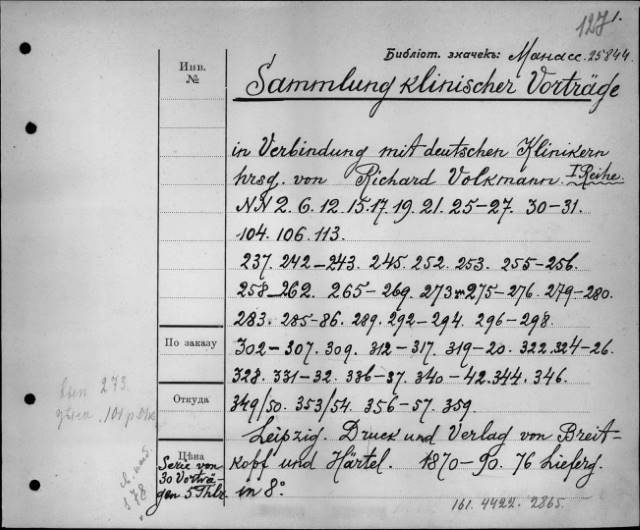 127/1.
Библіот. значекъ: Манасс. 25844.
Инв.
№
Sammlung klinischer Vorträge
in Verbindung mit deutschen Klinikern
hrsg. von Richard Volkmann. I Reihe.
NN 2. 6. 12. 15. 17. 19. 21. 25-27. 30-31.
104. 106. 113.
237. 242-243. 245. 252. 253. 255-256.
258-262. 265-269. 273 275-276. 279-280.
283. 285-86. 289. 292-294. 296-298.
По заказу
302-307. 309. 312-317. 319-20. 322. 324-26.
328. 331-32. 336-37. 340-42. 344. 346.
Откуда
349/50. 353/54. 356-57. 359.
вып 273
Leipzig. Druck und Verlag von Breit-
Цѣна
koff und Härtel. 1870-90. 76 Lieferg.
in 8º
Serie von
30 Vorträ-
gen 5 Thlr.
178
161. 4422. 2865.